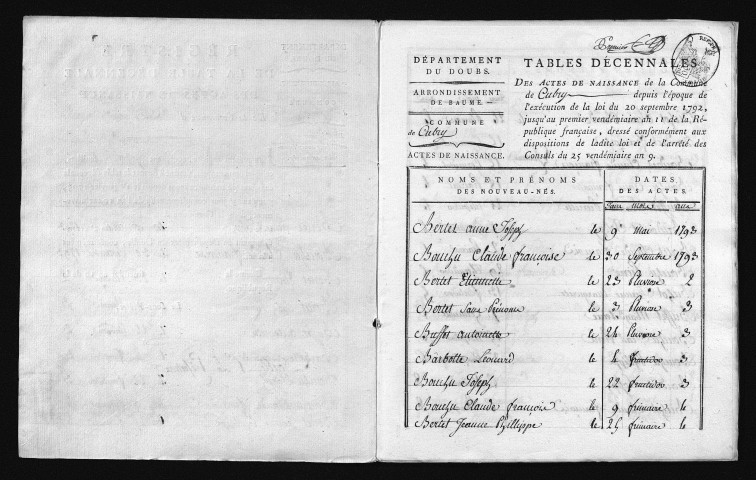 Premier
DÉPARTEMENT
DU DOUBS.
ARRONDISSEMENT
DE BAUME.
COMMUNE
de Cubry
ACTES DE NAISSANCE.
TABLES DÉCENNALES
DES ACTES DE NAISSANCE de la Commune
de Cubry depuis l'époque de
l'exécution de la loi du 20 septembre 1792,
jusqu'au premier vendémiaire an 11 de la Ré-
publique française, dressé conformément aux
dispositions de ladite loi et de l'arrêté des
Consuls du 25 vendémiaire an 9.
NOMS ET PRÉNOMS
DES NOUVEAU-NÉS.
DATES
DES ACTES.
Jours mois ans
Bertet anne Joseph le 9 mai 1793
Bouchu Claude françoise le 30 Septembre 1793
Bertet Etiennette le 23 Pluviose 2
Bertet Sans Prénoms le 3 Pluviose 3
Buffet antoinette le 24 Pluviose 3
Barbotte Léonard le 4 fructidor 3
Bouchu Joseph le 22 fructidor 3
Bouchu Claude françois le 9 frimaire 4
Bertet Jeanne Phillippe le 25 frimaire 4